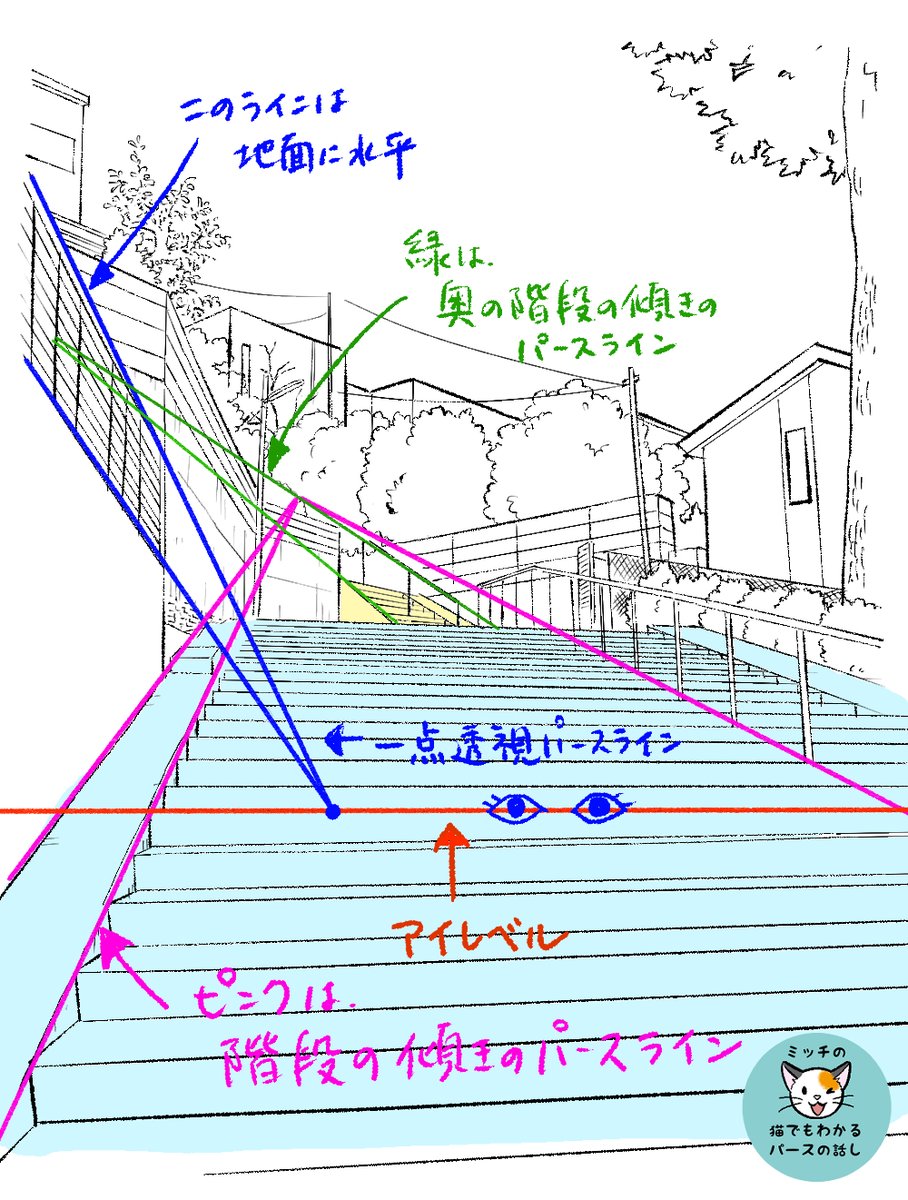 このラインは
地面に水平
緑は、
奥の階段の傾きの
パースライン
一点透視パースライン
アイレベル
ピンクは、
階段の傾きのパースライン
ミッチの
猫でもわかる
パースの話し